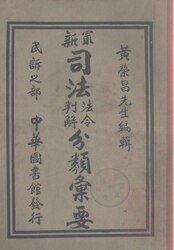 黃榮昌先生編輯
最新司法法令判解分類彙要
民訴之部
中華圖書館發行